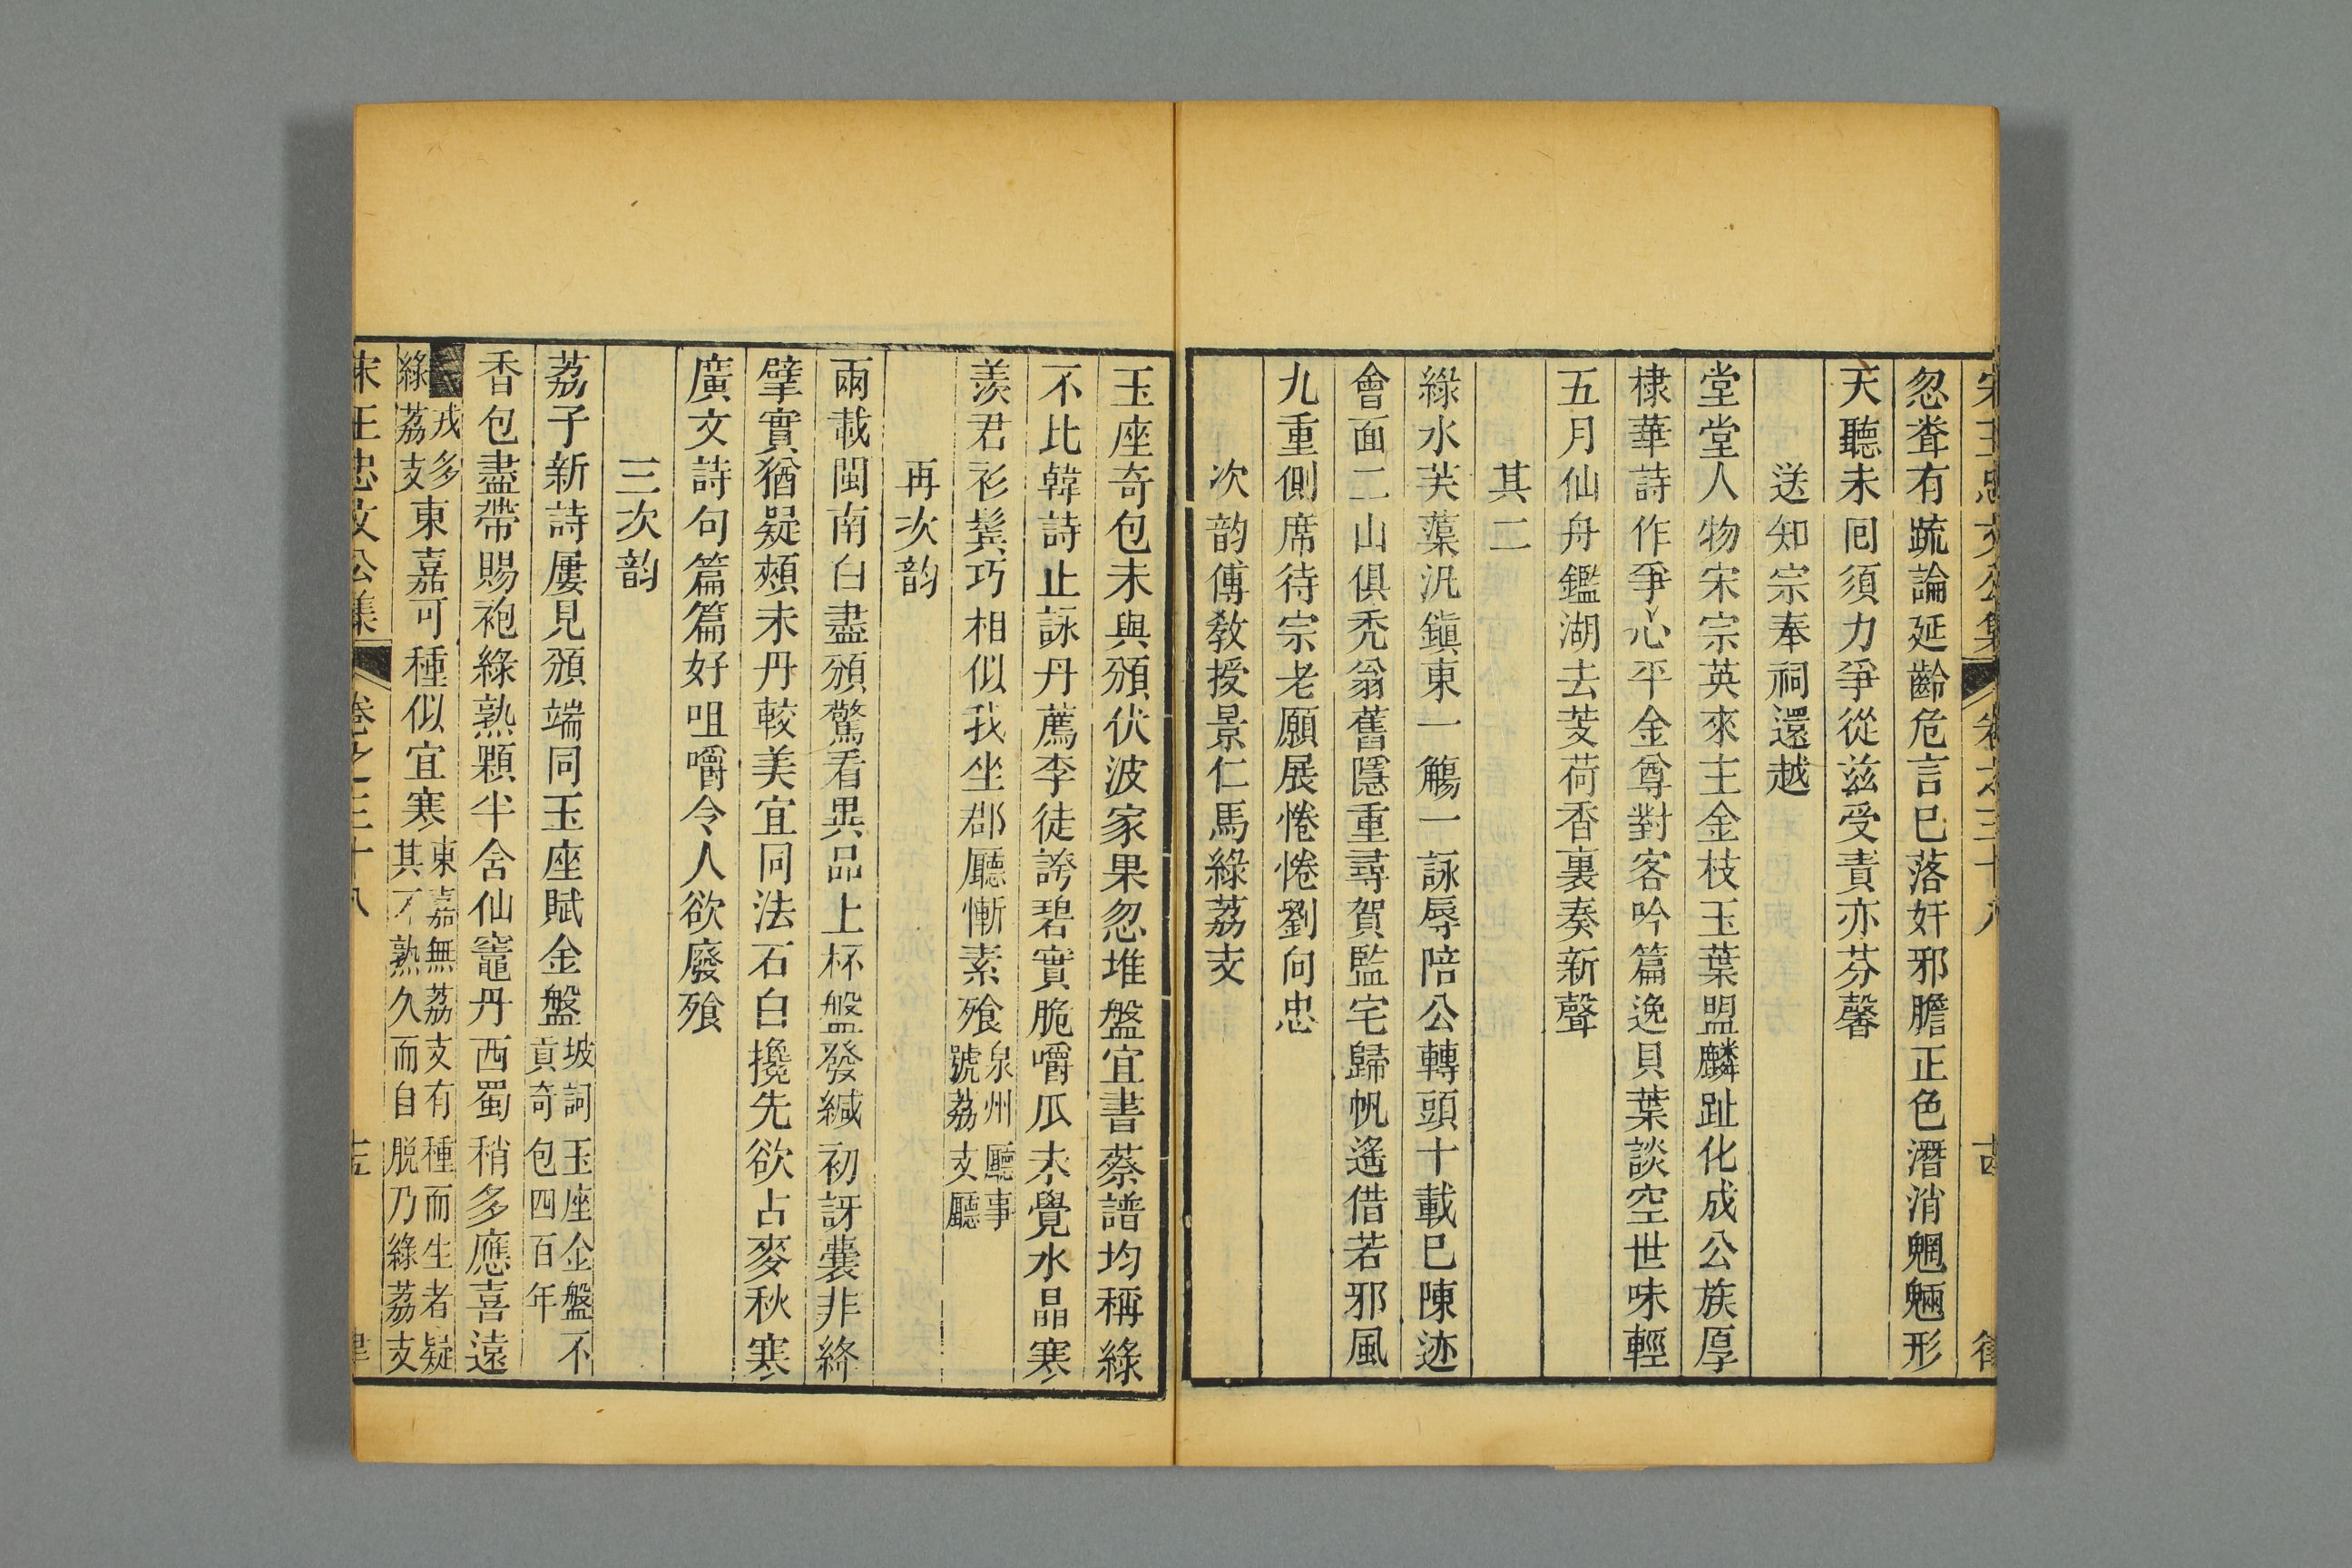 宋王忠文公集 卷之三十八
忽聋有䟽論延齡危言巳落奸邪膽正色潛消魍魎形
天聽未囘須力爭從兹受責亦芬馨
送知宗奉祠還越
堂堂人物宋宗英來主金枝玉葉盟麟趾化成公族厚
棣華詩作爭心平金尊對客吟篇逸貝葉談空世味輕
五月仙舟鑑湖去芰荷香裏奏新聲
其二
綠水芙蕖汎鎮東一觴一詠辱陪公轉頭十載巳陳迹
會面二山俱禿翁舊隱重尋賀監宅歸帆遙借若邪風
九重側席待宗老願展惓惓劉向忠
次韵傅敎授景仁馬綠荔支
玉座奇包未與頒伏波家果忽堆盤宜書蔡譜均稱綠
不比韓詩止詠丹薦李徒誇碧實脆嚼瓜未覺水晶寒
羨君衫鬓巧相似我坐郡廳慚素飱泉州廳事號荔支廳
再次韵
兩載閩南白盡頒驚看異品上杯盤發緘初訝囊非絳
擘實猶疑頰未丹較美宜同法石白攙先欲占麥秋寒
廣文詩句篇篇好咀嚼令人欲廢飱
三次韵
荔子新詩屢見頒端同玉座賦金盤坡詞玉座金盤不貢奇包四百年
香包盡帶賜袍綠熟顆半含仙竈丹西蜀稍多應喜遠
戎多綠荔支東嘉可種似宜寒東嘉無荔支有種而生者疑其不熟久而自脱乃綠荔支
宋王忠文公集 卷之三十八